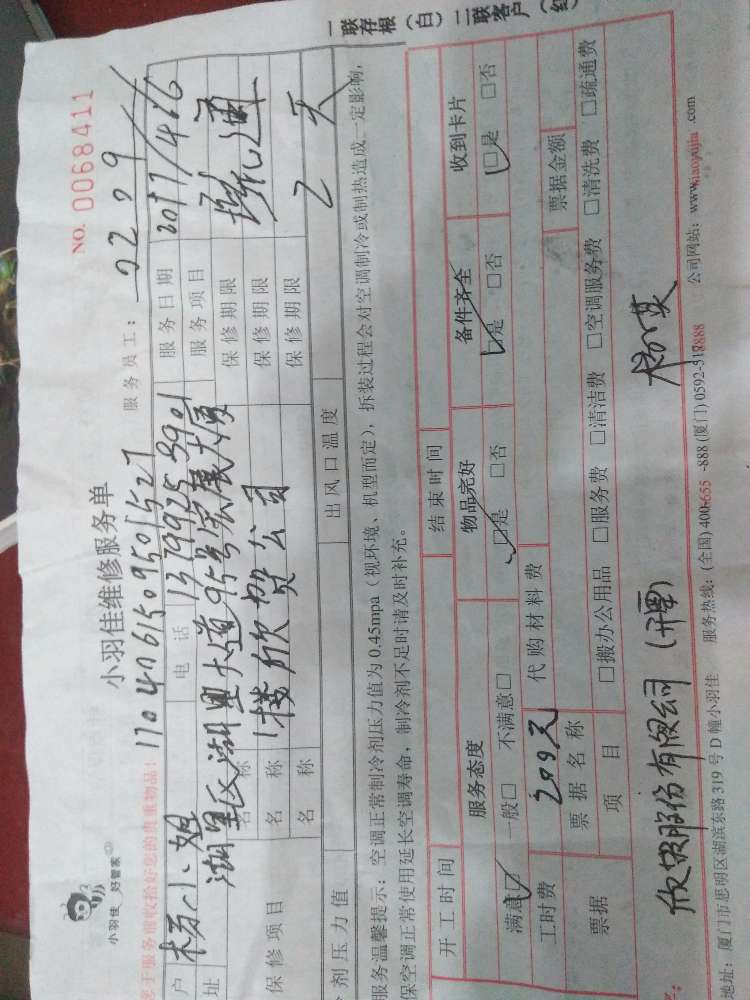 小羽佳 好管家
小羽佳维修服务单
NO. 0068411
您于服务前收拾好您的贵重物品! 1704061509501527
服务员工: 0209
户 杨小姐 电话 1379925 3901 服务日期 2017/4/6
址 湖里区湖里大道95号宏展大厦 服务项目 疏通
1楼欣贺公司
保修项目
名称 保修期限
名称 保修期限
名称 保修期限 2天
剂压力值 出风口温度
服务温馨提示: 空调正常制冷剂压力值为 0.45mpa (视环境、机型而定), 拆装过程会对空调制冷或制热造成一定影响,
保空调正常使用延长空调寿命, 制冷剂不足时请及时补充。
开工时间 结束时间
服务态度 物品完好 备件齐全 收到卡片
满意☑ 一般□ 不满意□ ☑是 □否 ☑是 □否 ☑是 □否
工时费 200元 代购材料费
票据 票据名称 票据金额
项目 □搬办公用品 □服务费 □清洁费 □空调服务费 □清洗费 □疏通费
欣贺股份有限公司 (开票)
地址: 厦门市思明区湖滨东路 319 号 D 幢小羽佳 服务热线: (全国) 400-655-888 (厦门) 0592-518888 公司网站: www.xiaoyujia.com
一联存根 (白) 二联客户 (红)